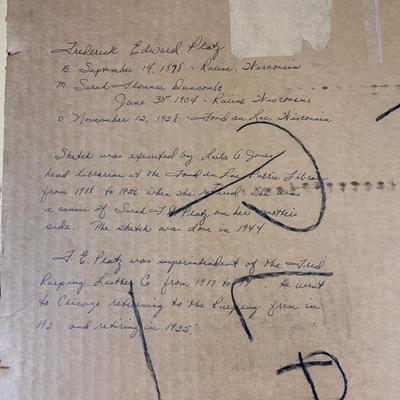 Frederick Edward Platz
B. September 14, 1878 - Racine, Wisconsin
M. Sarah Florence Dunscombe
June 30th 1904 - Racine Wisconsin
D November 12, 1958 - Fond du Lac, Wisconsin
Sketch was executed by Leila A. Janes
head librarian at the Fond du Lac Public Library
from 1918 to 1956 when she retired. She was
a cousin of Sarah F. D. Platz on her mother's
side. The sketch was done in 1944
F. E. Platz was superintendent of the Fred
Rueping Leather Co from 1917 to 19 . He went
to Chicago returning to the Rueping firm in
193 and retiring in 1935.